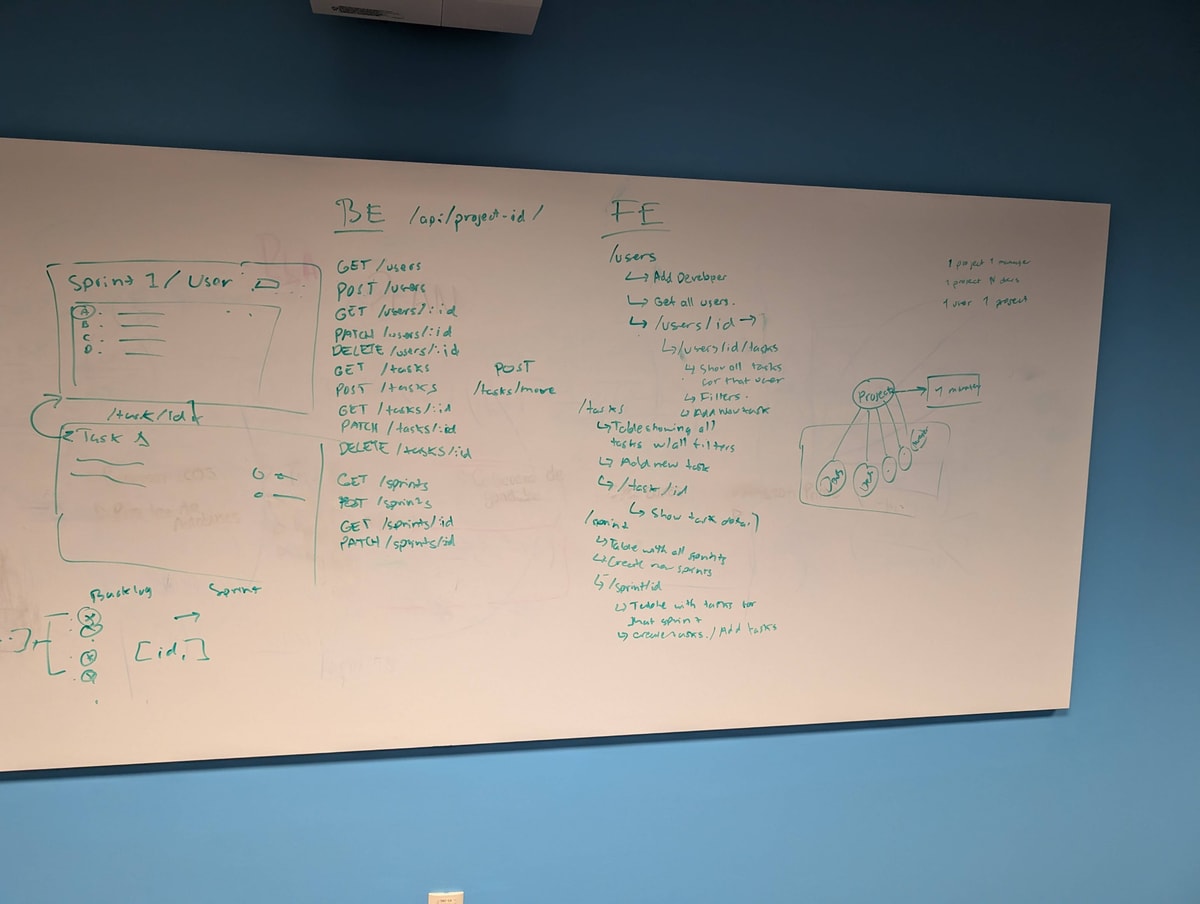 Sprint 1 / User
A.
B.
C.
D.
/task/id
Task A
Backlog → Sprint
[id,]
BE /api/project-id/
GET /users
POST /users
GET /users/:id
PATCH /users/:id
DELETE /users/:id
GET /tasks
POST /tasks
GET /tasks/:id
PATCH /tasks/:id
DELETE /tasks/:id
POST
/tasks/move
GET /sprints
POST /sprints
GET /sprints/:id
PATCH /sprints/:id
FE
/users
↳ Add Developer
↳ Get all users.
↳ /users/id →
↳ /users/id/tasks
↳ Show all tasks
for that user
↳ Filters.
↳ Add new task
/tasks
↳ Table showing all
tasks w/all filters
↳ Add new task
↳ /task/id
↳ Show task
/sprint
↳ Table with all sprints
↳ Create new sprints
↳ /sprint/id
↳ Table with tasks for
that sprint
↳ create tasks. / Add tasks
1 project 1 manager
1 project N users
1 user 1 project
Project
1 manager